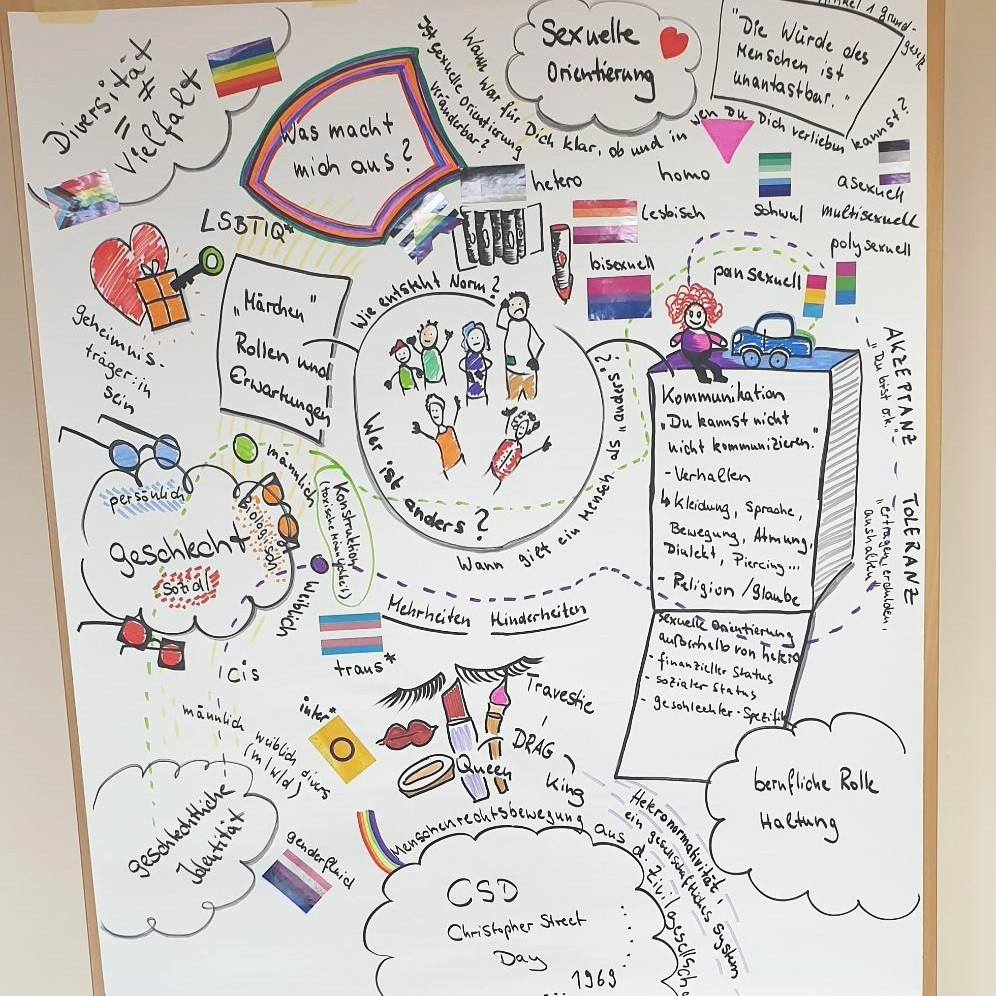 Diversität
=
Vielfalt
Was macht
mich aus?
Ist sexuelle Orientierung
veränderbar?
Wann war für Dich klar, ob und in wen Du Dich verlieben kannst?
Sexuelle
Orientierung
Artikel 1 Grund-
gesetz
"Die Würde des
Menschen ist
unantastbar."
hetero
homo
asexuell
lesbisch
schwul
multisexuell
polysexuell
bisexuell
pansexuell
LSBTIQ*
geheimnis-
träger:in
sein
"Märchen"
Rollen und
Erwartungen
Wie entsteht Norm?
Wer ist anders?
Wann gilt ein Mensch als "anders"?
Kommunikation
"Du kannst nicht
nicht kommunizieren."
- Verhalten
↳ Kleidung, Sprache,
Bewegung, Atmung,
Dialekt, Piercing...
- Religion/Glaube
sexuelle Orientierung
außerhalb von hetero
- finanzieller Status
- sozialer Status
- geschlechter-Spezifik
AKZEPTANZ
"Du bist ok."
TOLERANZ
"ertragen, erdulden,
aushalten"
persönlich
biologisch
geschlecht
sozial
männlich
weiblich
Konstruktion
(toxische Männlichkeit)
Mehrheiten Minderheiten
cis
trans*
inter*
männlich weiblich divers
(m/w/d)
geschlechtliche
Identität
genderfluid
Travestie
DRAG
Queen
King
berufliche Rolle
Haltung
Menschenrechtsbewegung aus d. Zivilgesellsch
Heteronormativität,
ein gesellschaftliches System
CSD
Christopher Street
Day
1969